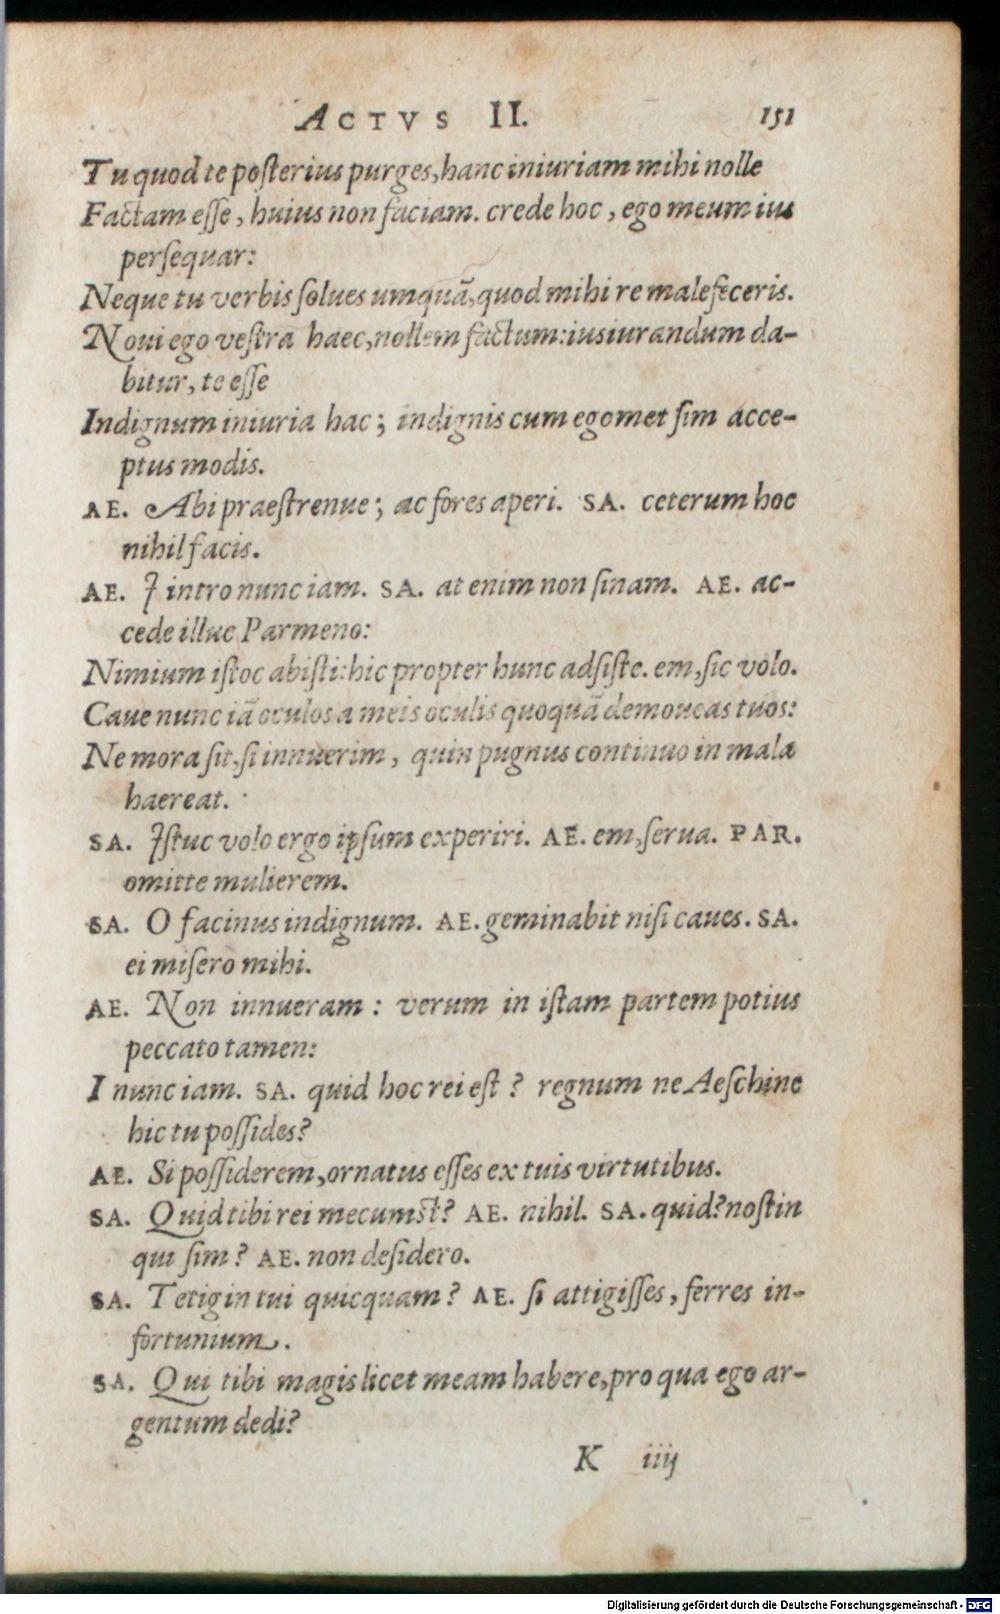 ACTVS II. 151
Tu quod te posterius purges, hanc iniuriam mihi nolle
Factam esse, huius non faciam. crede hoc, ego meum ius
persequar:
Neque tu verbis solues umquã, quod mihi re male feceris.
Noui ego vestra haec, nollem factum: iusiurandum da-
bitur, te esse
Indignum iniuria hac; indignis cum egomet sim acce-
ptus modis.
AE. Abi praestrenue; ac fores aperi. SA. ceterum hoc
nihil facis.
AE. I intro nunc iam. SA. at enim non sinam. AE. ac-
cede illuc Parmeno:
Nimium istoc abisti: hic propter hunc adsiste. em, sic volo.
Caue nunc iã oculos a meis oculis quoquã demoueas tuos:
Ne mora sit, si innuerim, quin pugnus continuo in mala
haereat.
SA. Istuc volo ergo ipsum experiri. AE. em, serua. PAR.
omitte mulierem.
SA. O facinus indignum. AE. geminabit nisi caues. SA.
ei misero mihi.
AE. Non innueram: verum in istam partem potius
peccato tamen:
I nunc iam. SA. quid hoc rei est? regnum ne Aeschine
hic tu possides?
AE. Si possiderem, ornatus esses ex tuis virtutibus.
SA. Quid tibi rei mecumst? AE. nihil. SA. quid? nostin
qui sim? AE. non desidero.
SA. Tetigin tui quicquam? AE. si attigisses, ferres in-
fortunium.
SA. Qui tibi magis licet meam habere, pro qua ego ar-
gentum dedi?
K iiij
Digitalisierung gefördert durch die Deutsche Forschungsgemeinschaft - DFG